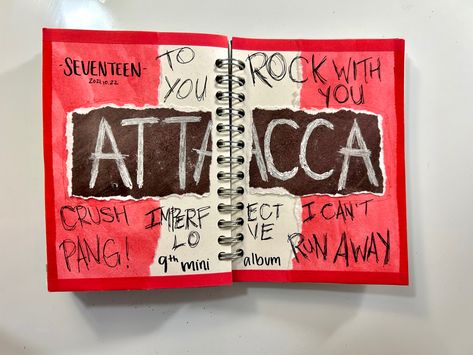 -SEVENTEEN-
2021.10.22
TO
YOU
ROCK WITH
YOU
ATTACCA
CRUSH
PANG!
IMPERFECTIVE
LO
I CAN'T
RUN AWAY
9th mini album